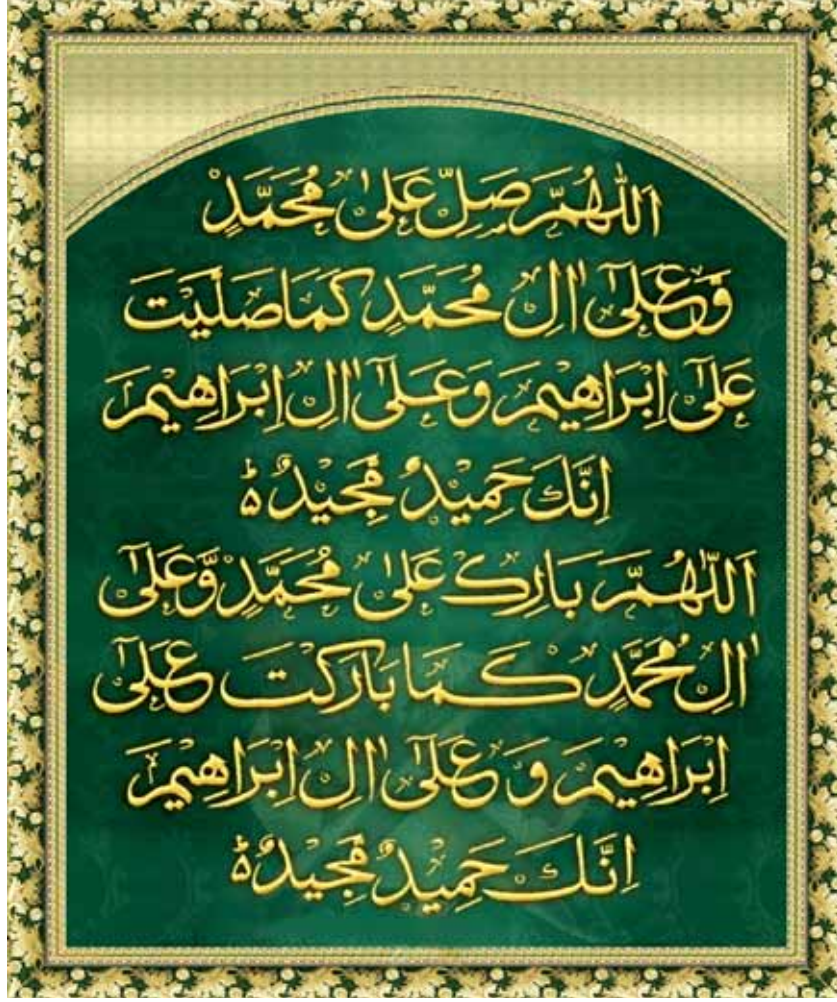 اَللّٰهُمَّ صَلِّ عَلٰی مُحَمَّدٍ
وَّعَلٰۤی اٰلِ مُحَمَّدٍ كَمَا صَلَّیْتَ
عَلٰۤی اِبْرَاهِیْمَ وَعَلٰۤی اٰلِ اِبْرَاهِیْمَ
اِنَّكَ حَمِیْدٌ مَّجِیْدٌ ؕ
اَللّٰهُمَّ بَارِكْ عَلٰی مُحَمَّدٍ وَّعَلٰۤی
اٰلِ مُحَمَّدٍ كَمَا بَارَكْتَ عَلٰۤی
اِبْرَاهِیْمَ وَ عَلٰۤی اٰلِ اِبْرَاهِیْمَ
اِنَّكَ حَمِیْدٌ مَّجِیْدٌ ؕ